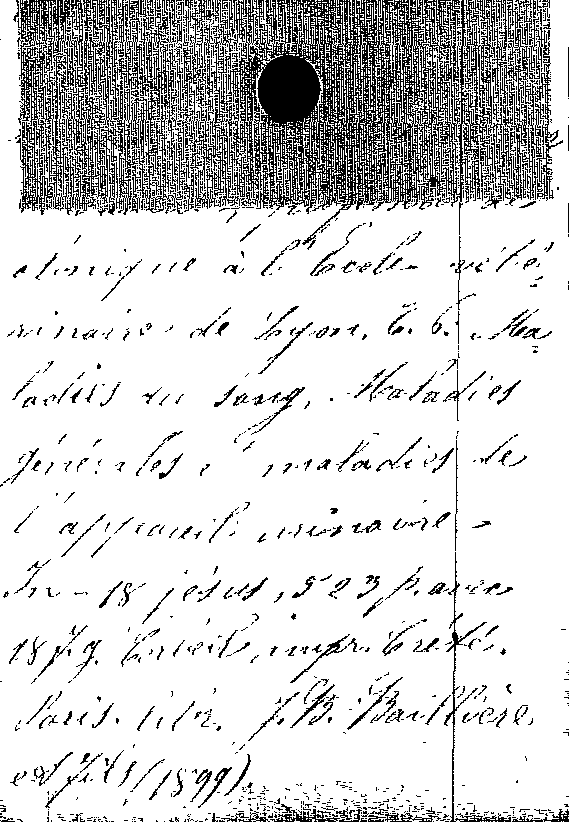 professeur de
clinique à l'Ecole vété-
rinaire de Lyon. T. 6. Ma-
ladies du sang. Maladies
générales, maladies de
l'appareil urinaire -
In-18 jésus, 523 p. avec
18 fig. Corbeil, impr. Crété.
Paris. libr. J. B. Baillière
et fils (1899).